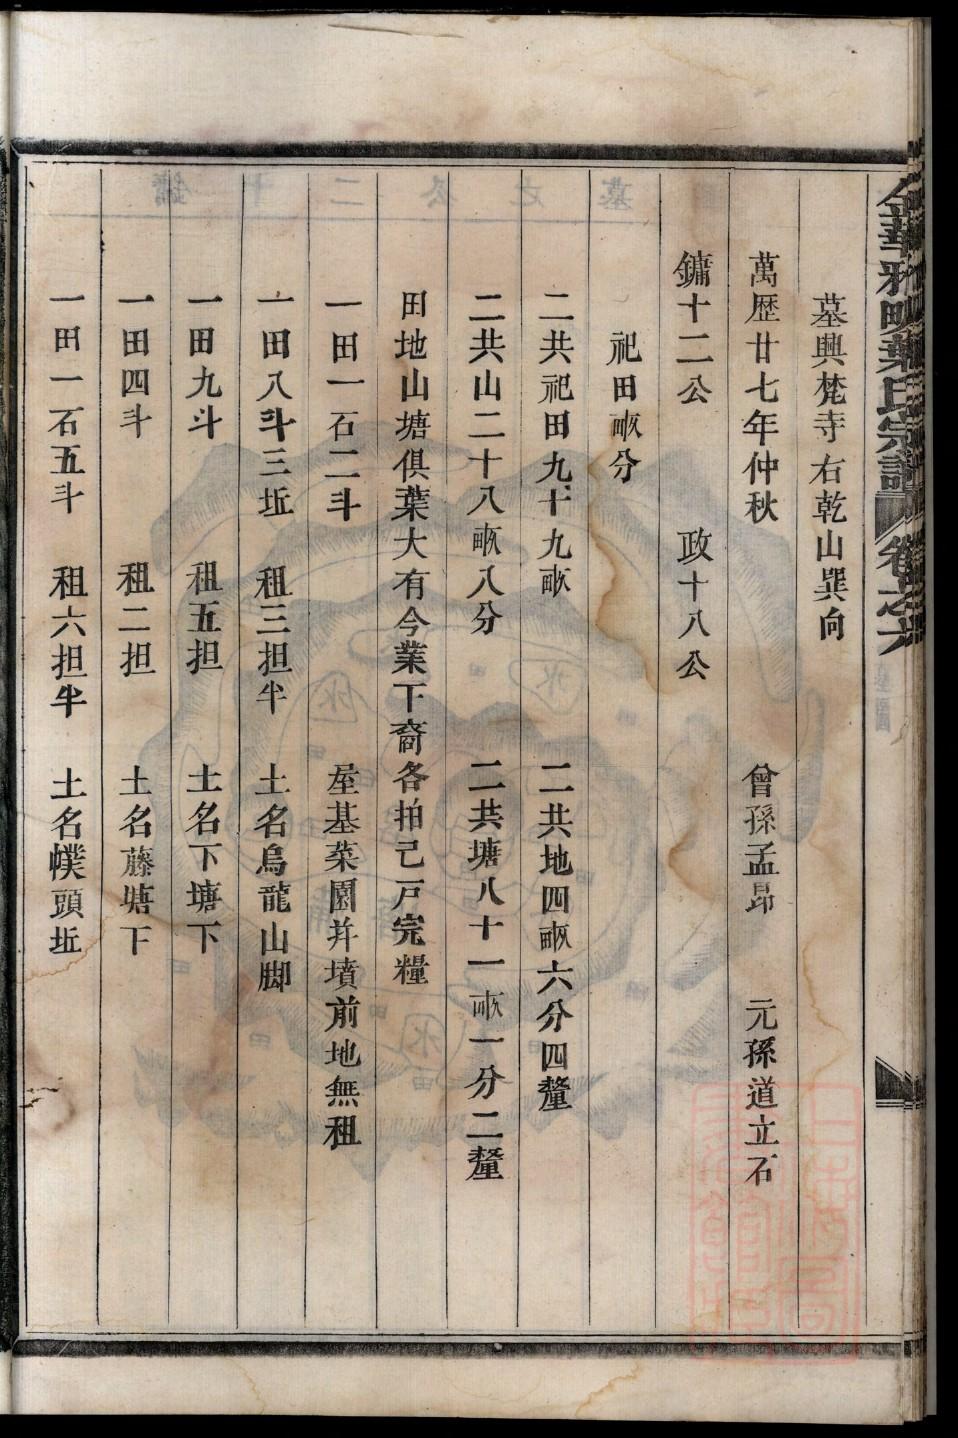 墓興梵寺右乾山巽向
萬歷廿七年仲秋 曾孫孟昂 元孫道立石
鏞十二公 政十八公
祀田畝分
二共祀田九十九畝 二共地四畝六分四釐
二共山二十八畝八分 二共塘八十一畝一分二釐
田地山塘俱葉大有今業下裔各拍己戸完糧
一田一石二斗 屋基菜園并墳前地無租
一田八斗三坵 租三担半 土名烏龍山脚
一田九斗 租五担 土名下塘下
一田四斗 租二担 土名藤塘下
一田一石五斗 租六担半 土名幞頭坵
金華雅畈葉氏宗譜 卷之六